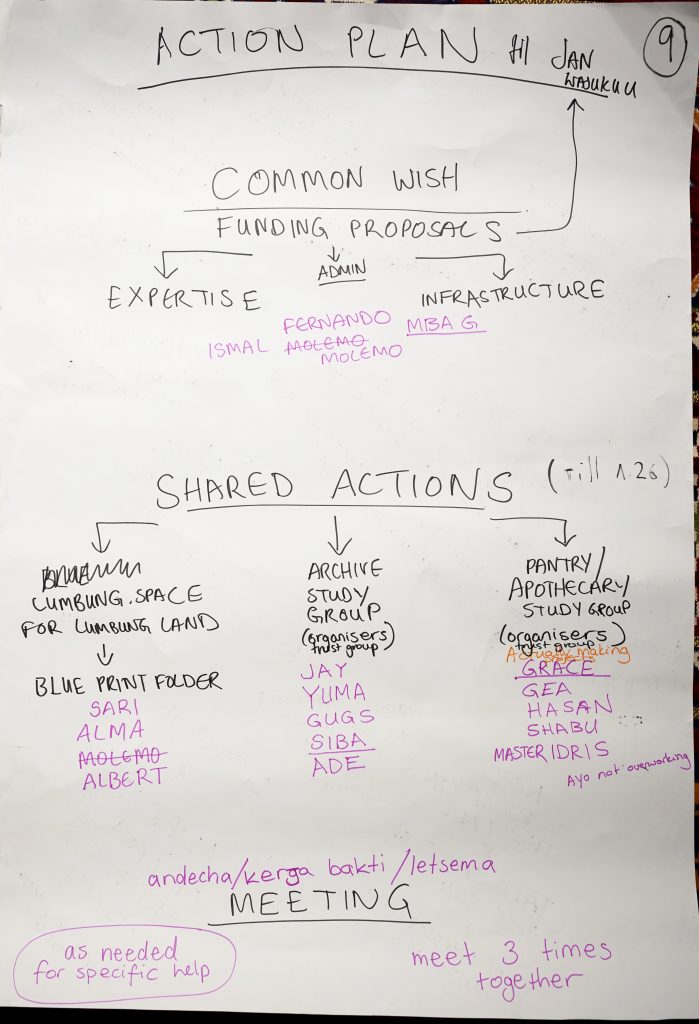 ACTION PLAN till JAN
WAJUKUU
9
COMMON WISH
FUNDING PROPOSALS
EXPERTISE
ADMIN
INFRASTRUCTURE
ISMAL
FERNANDO
MOLEMO
MOLEMO
MBA G
SHARED ACTIONS (Till 1.26)
LUMBUNG.SPACE
FOR LUMBUNG LAND
BLUE PRINT FOLDER
SARI
ALMA
MOLEMO
ALBERT
ARCHIVE
STUDY
GROUP
(organisers)
trust group
JAY
YUMA
GUGS
SIBA
ADE
PANTRY/
APOTHECARY/
STUDY GROUP
(organisers)
trust group
Actually making
GRACE
GEA
HASAN
SHABU
MASTER IDRIS
Ayo not overworking
andecha/kerga bakti/letsema
MEETING
as needed
for specific help
meet 3 times
together